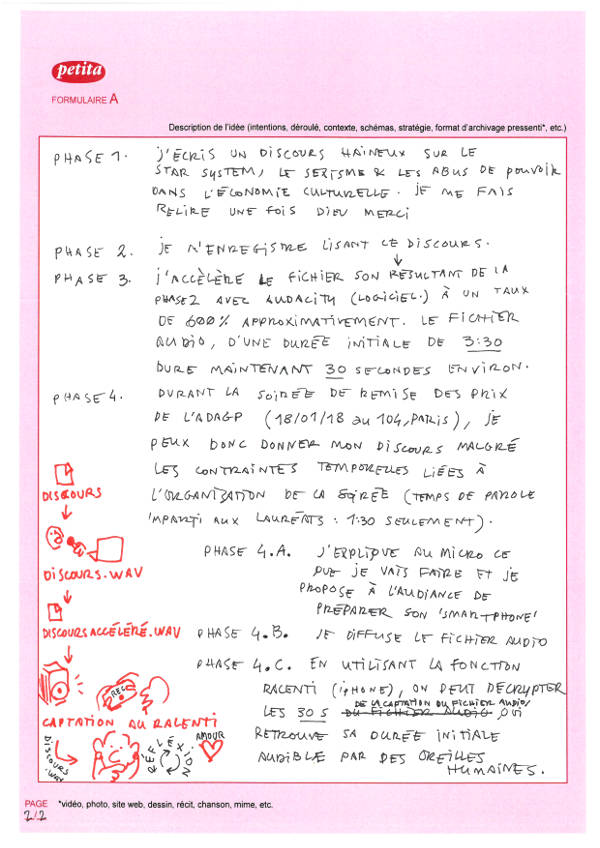 petita
FORMULAIRE A
Description de l'idée (intentions, déroulé, contexte, schémas, stratégie, format d'archivage pressenti*, etc.)
PHASE 1. J'ÉCRIS UN DISCOURS HAINEUX SUR LE
STAR SYSTEM, LE SEXISME & LES ABUS DE POUVOIR
DANS L'ÉCONOMIE CULTURELLE. JE ME FAIS
RELIRE UNE FOIS DIEU MERCI
PHASE 2. JE M'ENREGISTRE LISANT CE DISCOURS.
PHASE 3. J'ACCÈLÈRE LE FICHIER SON RÉSULTANT DE LA
PHASE 2 AVEC AUDACITY (LOGICIEL.) À UN TAUX
DE 600% APPROXIMATIVEMENT. LE FICHIER
AUDIO, D'UNE DURÉE INITIALE DE 3:30
DURE MAINTENANT 30 SECONDES ENVIRON.
PHASE 4. DURANT LA SOIRÉE DE REMISE DES PRIX
DE L'ADAGP (18/01/18 au 104, PARIS), JE
PEUX DONC DONNER MON DISCOURS MALGRÉ
LES CONTRAINTES TEMPORELLES LIÉES À
L'ORGANIZATION DE LA SOIRÉE (TEMPS DE PAROLE
IMPARTI AUX LAURÉATS : 1:30 SEULEMENT).
PHASE 4.A. J'EXPLIQUE AU MICRO CE
QUE JE VAIS FAIRE ET JE
PROPOSE À L'AUDIANCE DE
PRÉPARER SON 'SMARTPHONE'
PHASE 4.B. JE DIFFUSE LE FICHIER AUDIO
PHASE 4.C. EN UTILISANT LA FONCTION
RALENTI (iPHONE), ON PEUT DÉCRYPTER
DE LA CAPTATION DU FICHIER AUDIO
LES 30 S DU FICHIER AUDIO QUI
RETROUVE SA DURÉE INITIALE
AUDIBLE PAR DES OREILLES
HUMAINES.
DISCOURS
DISCOURS.WAV
DISCOURS ACCÉLÉRÉ.WAV
REC
CAPTATION AU RALENTI
DISCOURS.WAV
RÉFLEXION
AMOUR
PAGE *vidéo, photo, site web, dessin, récit, chanson, mime, etc.
2/2